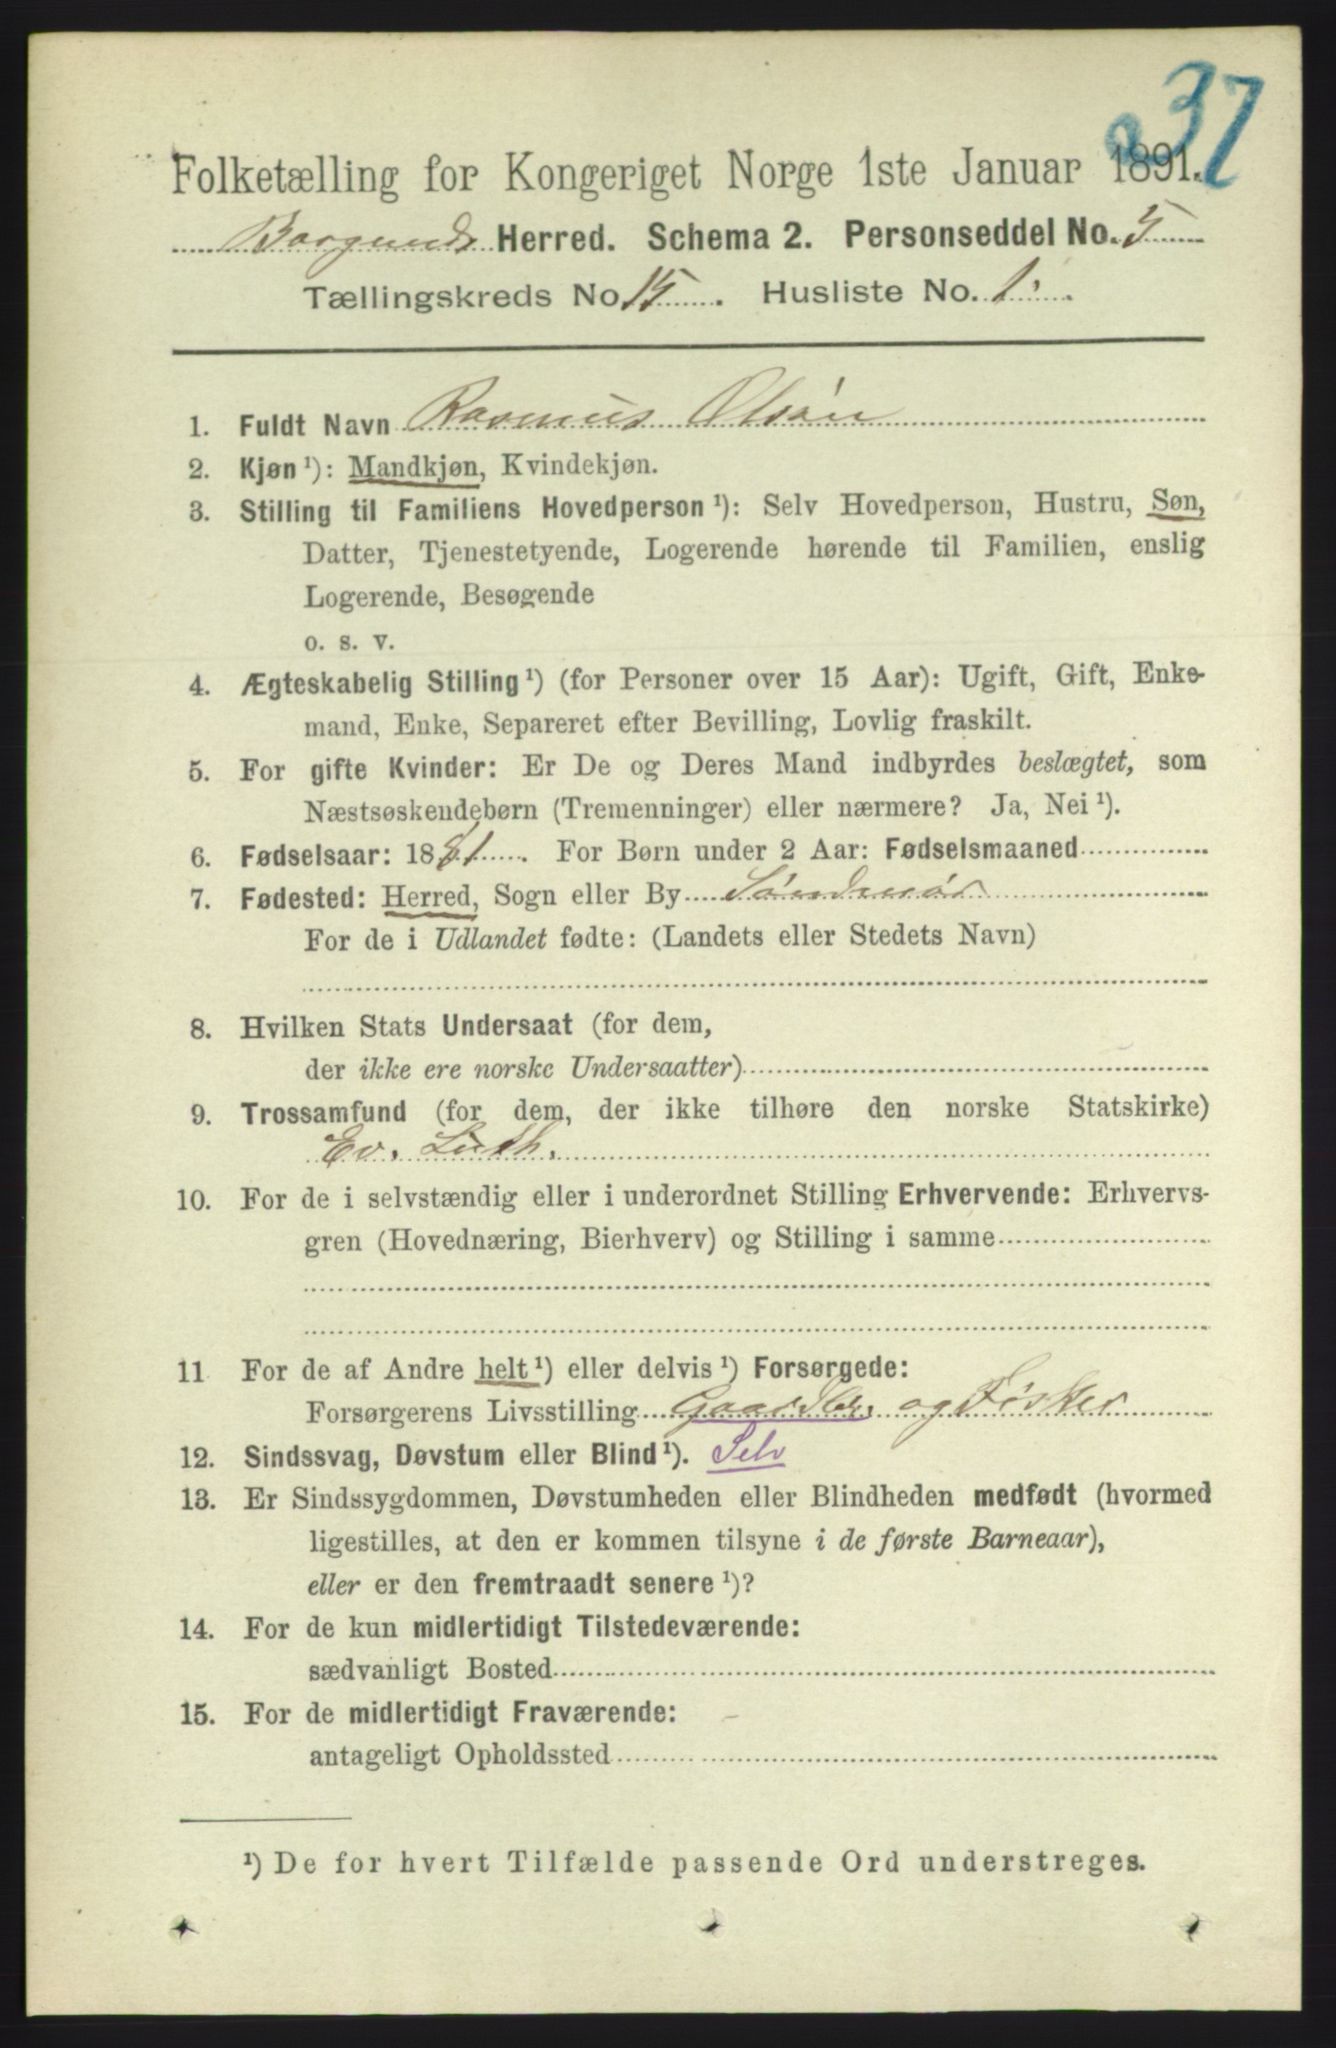 237
Folketælling for Kongeriget Norge 1ste Januar 1891.
Borgunds Herred. Schema 2. Personseddel No. 5
Tællingskreds No 15. Husliste No. 1.
1. Fuldt Navn Rasmus Olsen
2. Kjøn ¹): Mandkjøn, Kvindekjøn.
3. Stilling til Familiens Hovedperson ¹): Selv Hovedperson, Hustru, Søn,
Datter, Tjenestetyende, Logerende hørende til Familien, enslig
Logerende, Besøgende
o. s. v.
4. Ægteskabelig Stilling ¹) (for Personer over 15 Aar): Ugift, Gift, Enke-
mand, Enke, Separeret efter Bevilling, Lovlig fraskilt.
5. For gifte Kvinder: Er De og Deres Mand indbyrdes beslægtet, som
Næstsøskendebørn (Tremenninger) eller nærmere? Ja, Nei ¹).
6. Fødselsaar: 1881. For Børn under 2 Aar: Fødselsmaaned
7. Fødested: Herred, Sogn eller By Søndmør
For de i Udlandet fødte: (Landets eller Stedets Navn)
8. Hvilken Stats Undersaat (for dem,
der ikke ere norske Undersaatter)
9. Trossamfund (for dem, der ikke tilhøre den norske Statskirke)
Ev. Luth.
10. For de i selvstændig eller i underordnet Stilling Erhvervende: Erhvervs-
gren (Hovednæring, Bierhverv) og Stilling i samme
11 For de af Andre helt ¹) eller delvis ¹) Forsørgede:
Forsørgerens Livsstilling Gaardbr. og Fisker
12. Sindssvag, Døvstum eller Blind ¹). Selv
13. Er Sindssygdommen, Døvstumheden eller Blindheden medfødt (hvormed
ligestilles, at den er kommen tilsyne i de første Barneaar),
eller er den fremtraadt senere ¹)?
14. For de kun midlertidigt Tilstedeværende:
sædvanligt Bosted
15. For de midlertidigt Fraværende:
antageligt Opholdssted
¹) De for hvert Tilfælde passende Ord understreges.